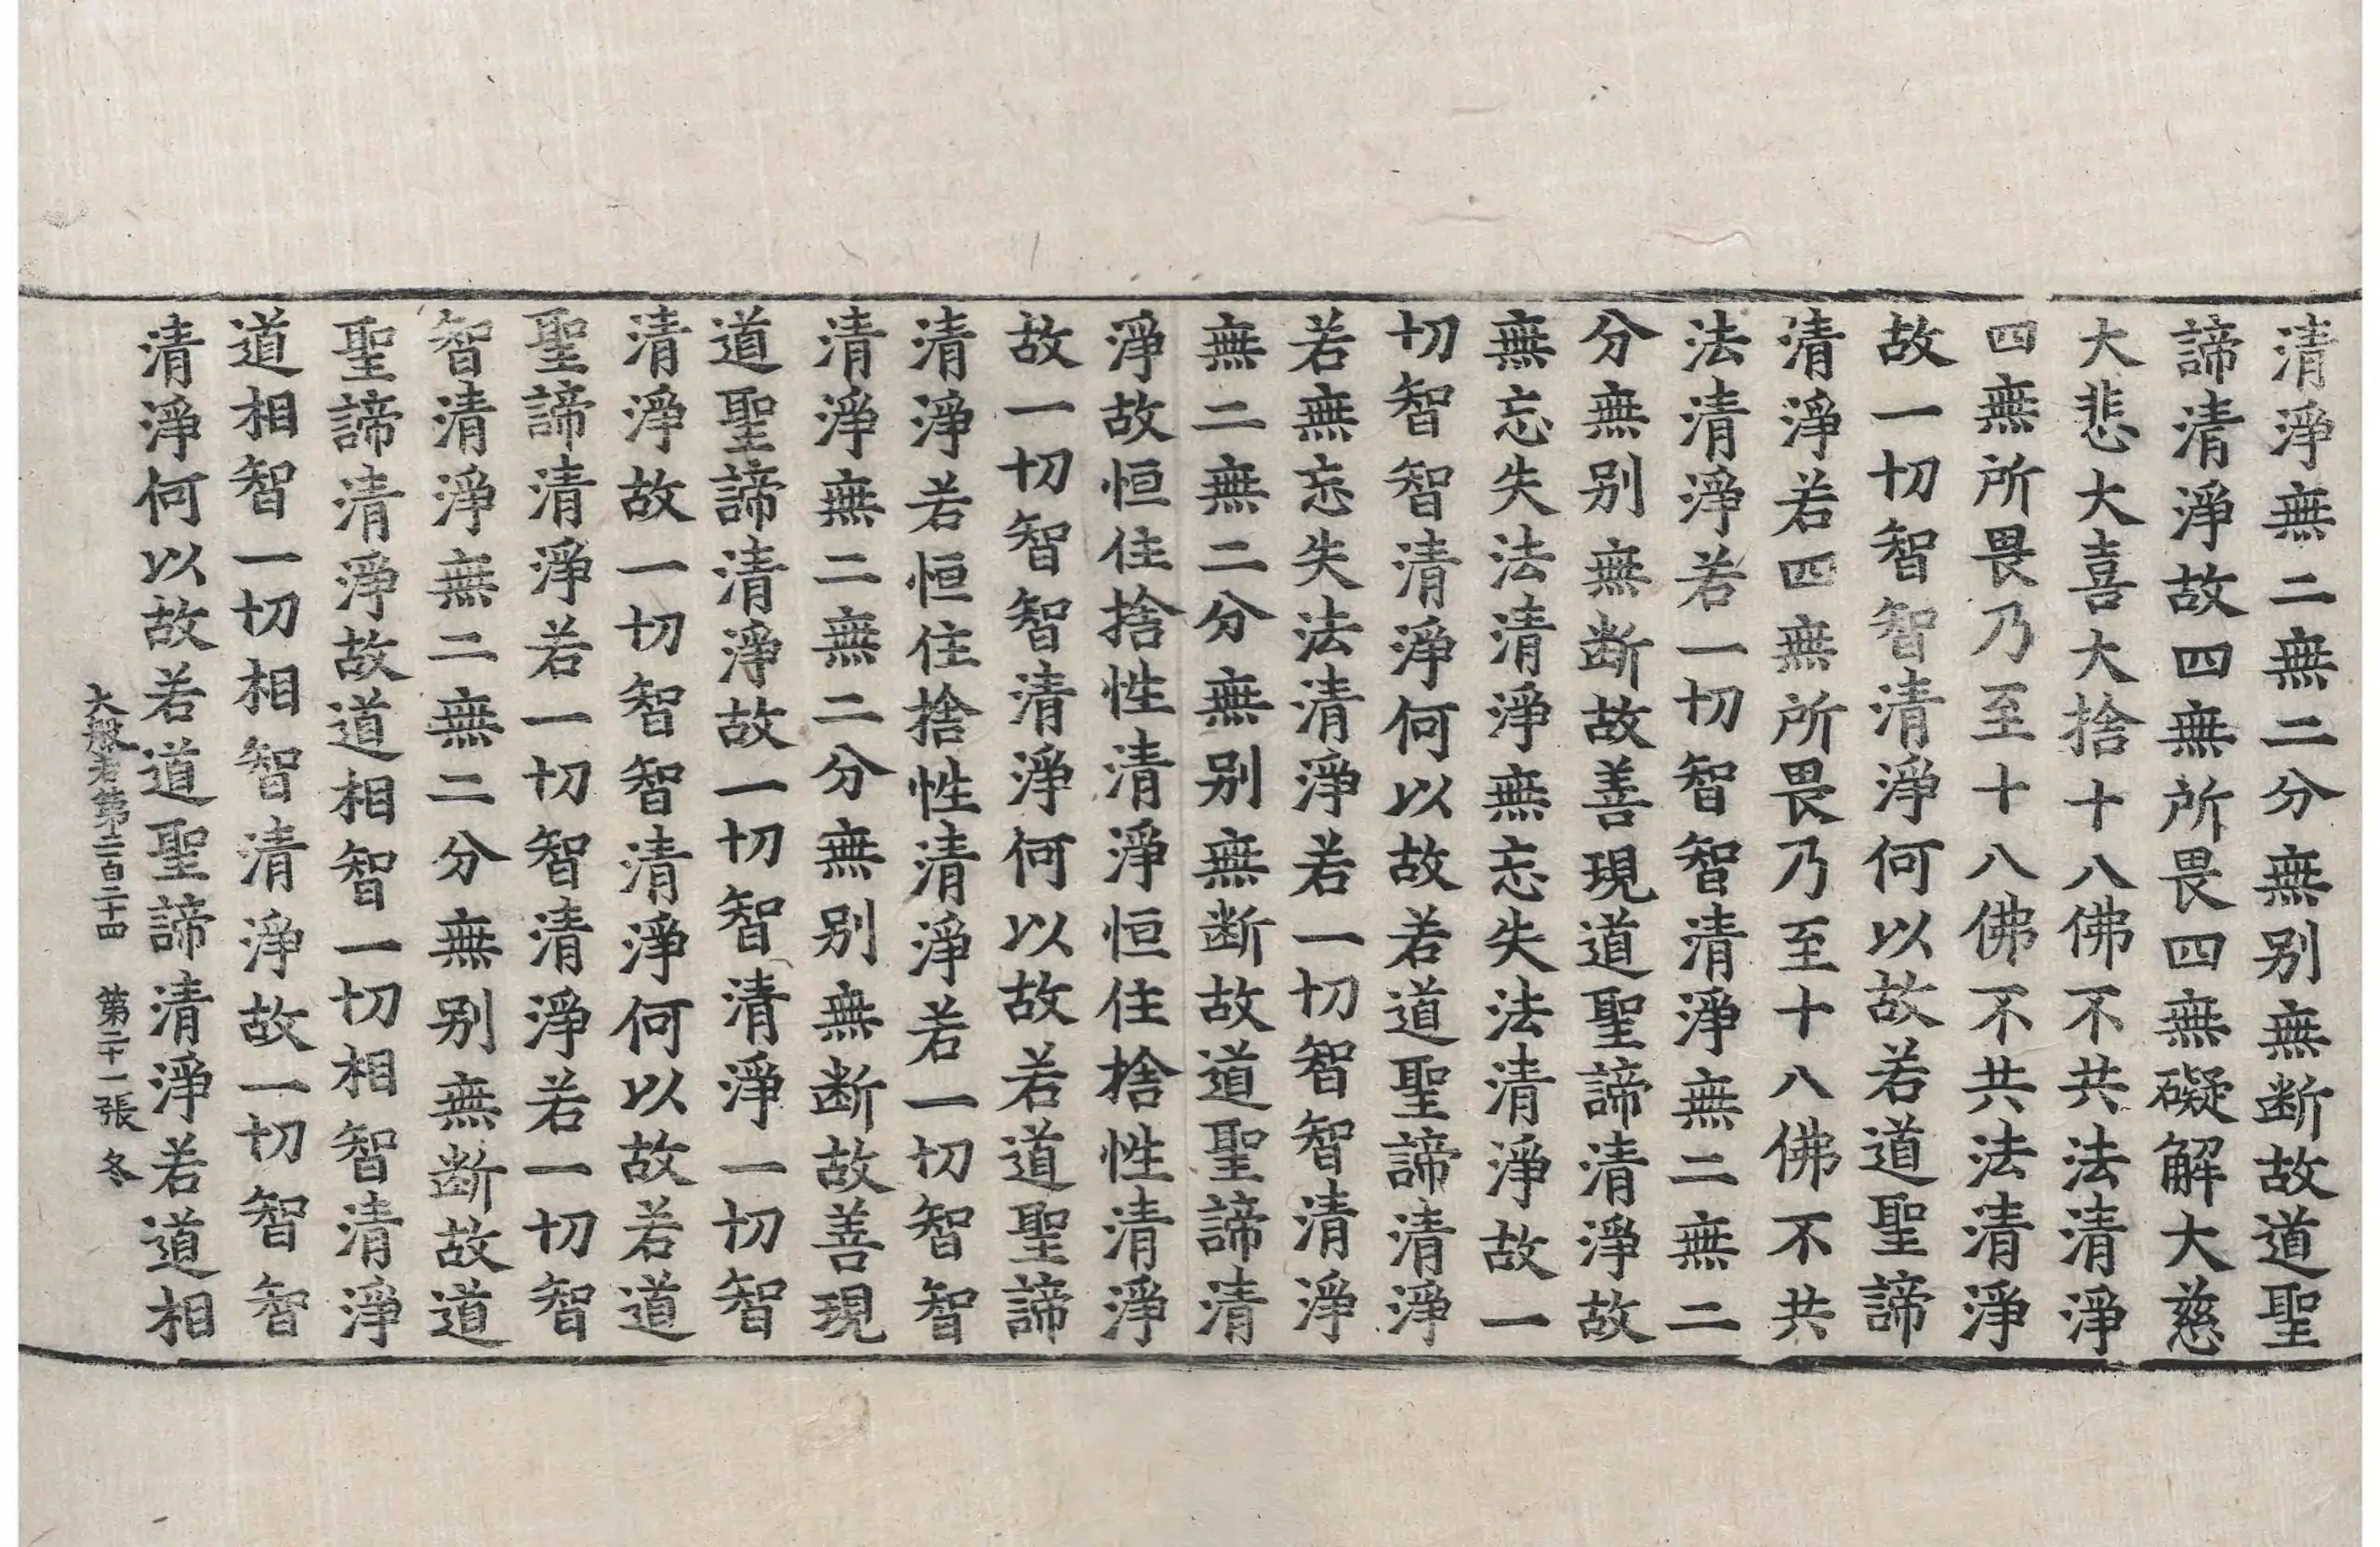 清淨無二無二分無别無断故道聖
諦清淨故四無所畏四無礙解大慈
大悲大喜大捨十八佛不共法清淨
四無所畏乃至十八佛不共法清淨
故一切智智清淨何以故若道聖諦
清淨若四無所畏乃至十八佛不共
法清淨若一切智智清淨無二無二
分無别無断故善現道聖諦清淨故
無忘失法清淨無忘失法清淨故一
切智智清淨何以故若道聖諦清淨
若無忘失法清淨若一切智智清淨
無二無二分無别無断故道聖諦清
淨故恒住捨性清淨恒住捨性清淨
故一切智智清淨何以故若道聖諦
清淨若恒住捨性清淨若一切智智
清淨無二無二分無别無断故善現
道聖諦清淨故一切智清淨一切智
清淨故一切智智清淨何以故若道
聖諦清淨若一切智清淨若一切智
智清淨無二無二分無别無断故道
聖諦清淨故道相智一切相智清淨
道相智一切相智清淨故一切智智
清淨何以故若道聖諦清淨若道相
大般若第二百二十四 第二十一張 冬